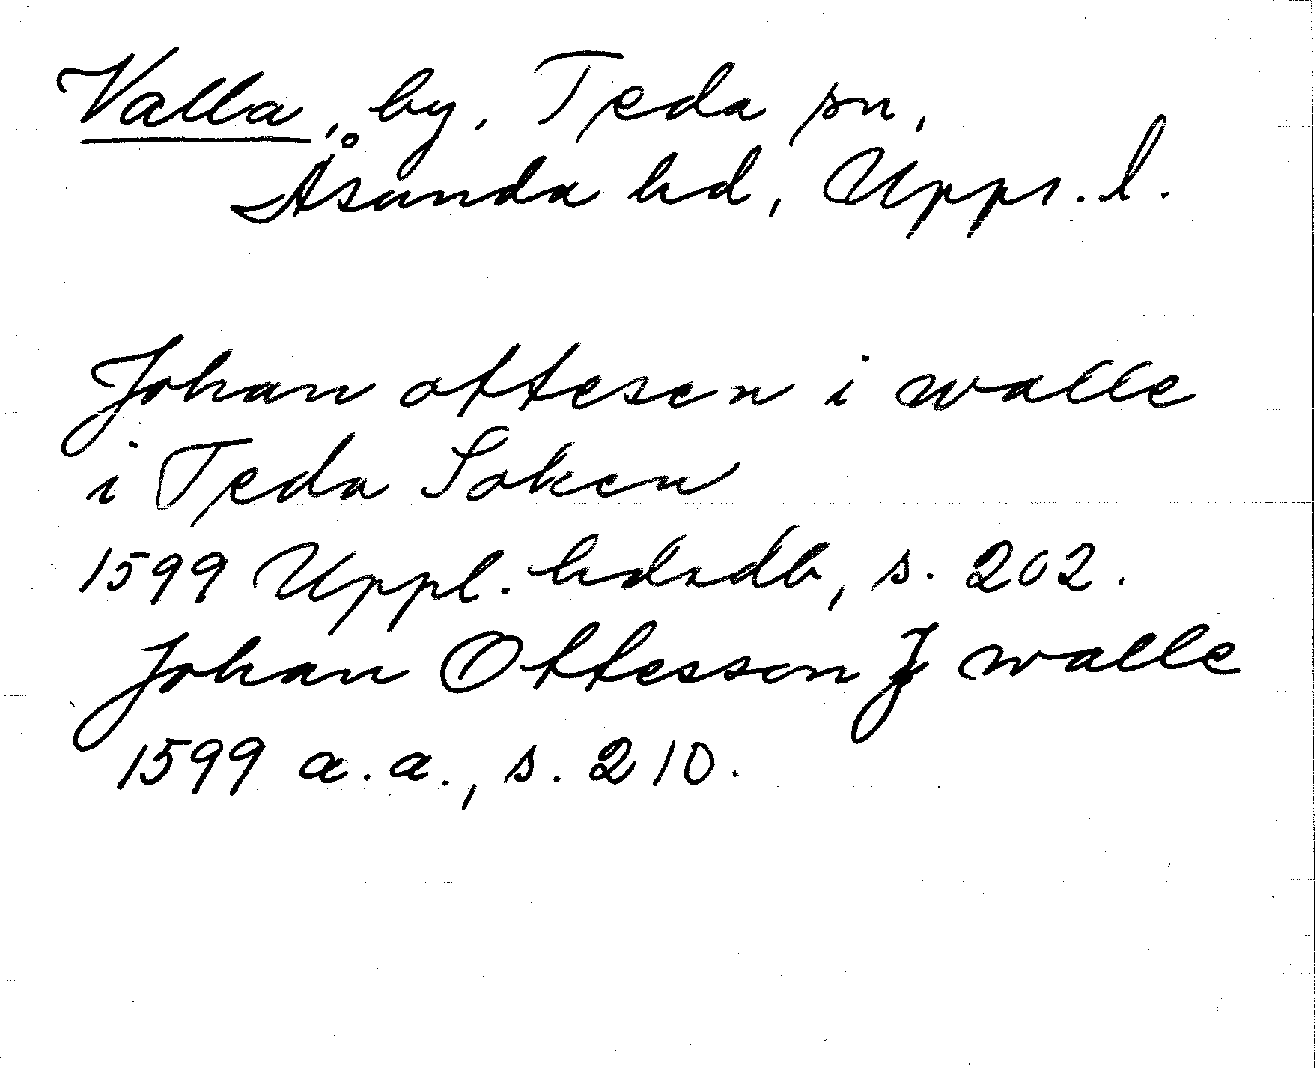 Valla, by, Teda sn,
Åsunda hd, Upps. l.
Johan ottesen i walle
i Teda Soken
1599 Uppl. hdsdb, s. 202.
Johan Ottesson J walle
1599 a.a., s. 210.